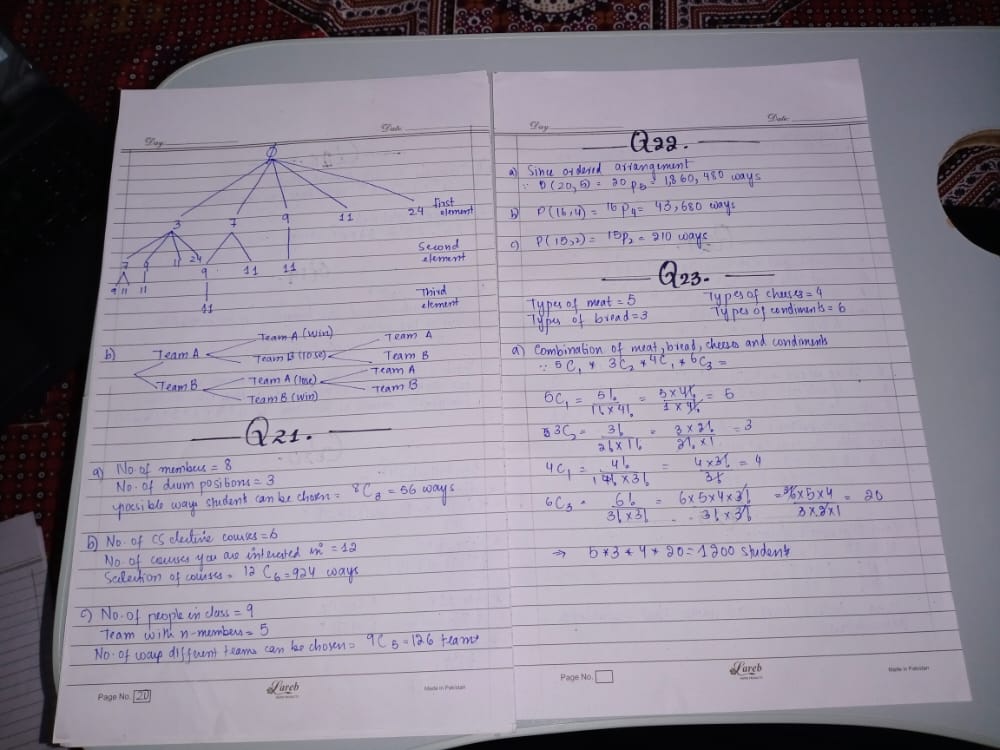 Day
Date
ϕ
3 7 9 11 24 first element
7 9 11 24 9 11 11 Second element
9 11 11 11 Third element
b) Team A
Team A (win)
Team B (lose)
Team A
Team B
Team B
Team A (lose)
Team B (win)
Team A
Team B
Q21.
a) No. of members = 8
No. of drum positions = 3
possible ways student can be chosen = 8C3 = 56 ways
b) No. of CS elective courses = 6
No. of courses you are interested in = 12
Selection of courses = 12 C6 = 924 ways
c) No. of people in class = 9
Team with n-members = 5
No. of ways different teams can be chosen = 9C5 = 126 teams
Page No. 20
Lareb
Made in Pakistan
Day
Date
Q22.
a) Since ordered arrangement
∵ P(20,5) = 20P5 = 1,860,480 ways
b) P(16,4) = 16P4 = 43,680 ways
c) P(15,2) = 15P2 = 210 ways
Q23.
Types of meat = 5 Types of cheeses = 4
Types of bread = 3 Types of condiments = 6
a) Combination of meat, bread, cheeses and condiments
∵ 5C1 * 3C2 * 4C1 * 6C3 =
5C1 = 5!/1!×4! = 5×4!/1×4! = 5
3C2 = 3!/2!×1! = 3×2!/2!×1 = 3
4C1 = 4!/1!×3! = 4×3!/3! = 4
6C3 = 6!/3!×3! = 6×5×4×3!/3!×3! = 6×5×4/3×2×1 = 20
⇒ 5*3*4*20=1200 students
Page No.
Lareb
Made in Pakistan